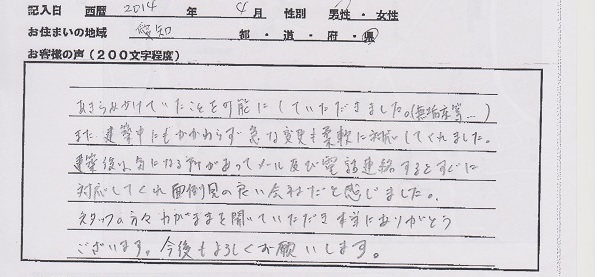 記入日 西暦 2014 年 4 月 性別 男性・女性
お住まいの地域 愛知 都・道・府・県
お客様の声(200文字程度)
あきらめかけていたことを可能にしていただきました。(無垢床等…)
また、建築中にもかかわらず急な変更も柔軟に対応してくれました。
建築後は、気になる所があってメール及び電話連絡するとすぐに
対応してくれ面倒見の良い会社だと感じました。
スタッフの方々わがままを聞いていただき本当にありがとう
ございます。今後もよろしくお願いします。